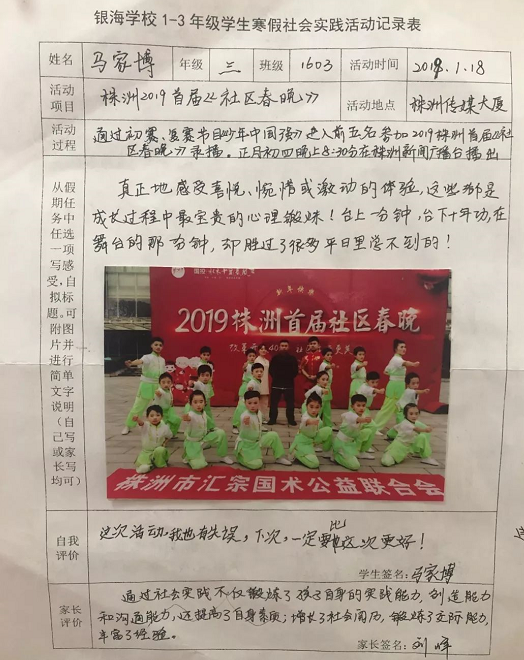 银海学校1-3年级学生寒假社会实践活动记录表
姓名 马家博 年级 三 班级 1603 活动时间 2019.1.18
活动项目 株洲2019首届《社区春晚》 活动地点 株洲传媒大厦
活动过程 通过初赛、复赛节目《少年中国强》进入前五名参加2019株洲首届《社
区春晚》录播。正月初四晚上8:30分在株洲新闻广播台播出
从假期任务中任选一项写感受,自拟标题。可附图片并进行简单文字说明(自己写或家长写均可)
真正地感受喜悦、惋惜或激动的体验,这些都是
成长过程中最宝贵的心理锻炼!台上一分钟,台下十年功,在
舞台的那一分钟,却胜过了很多平日里学不到的!
新年快乐
2019株洲首届社区春晚
株洲市汇宗国术公益联合会
自我评价 这次活动,我也有失误,下次,一定要比这次更好!
学生签名:马家博
家长评价 通过社会实践不仅锻炼了孩子自身的实践能力,创造能力
和沟通能力,还提高了自身素质;增长了社会阅历,锻炼了交际能力,
丰富了经验。
家长签名:刘峰